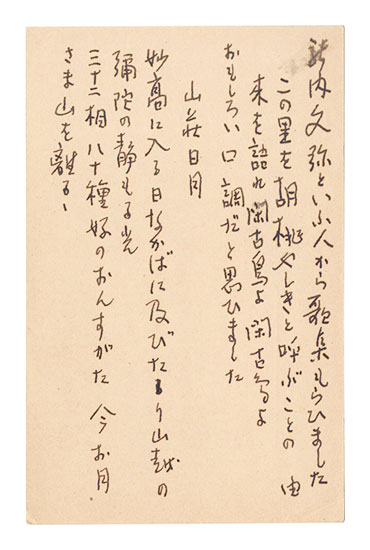 内文弥といふ人から歌集もらひました
この里を胡桃やしきと呼ぶことの 由
来を語れ閑古鳥よ閑古鳥よ
おもしろい口調だと思ひました
山荘日月
妙高に入る日なかばに及びたり山越の
彌陀の静もる光
三十二相八十種好のおんすがた 今お月
さま山を離るゝ